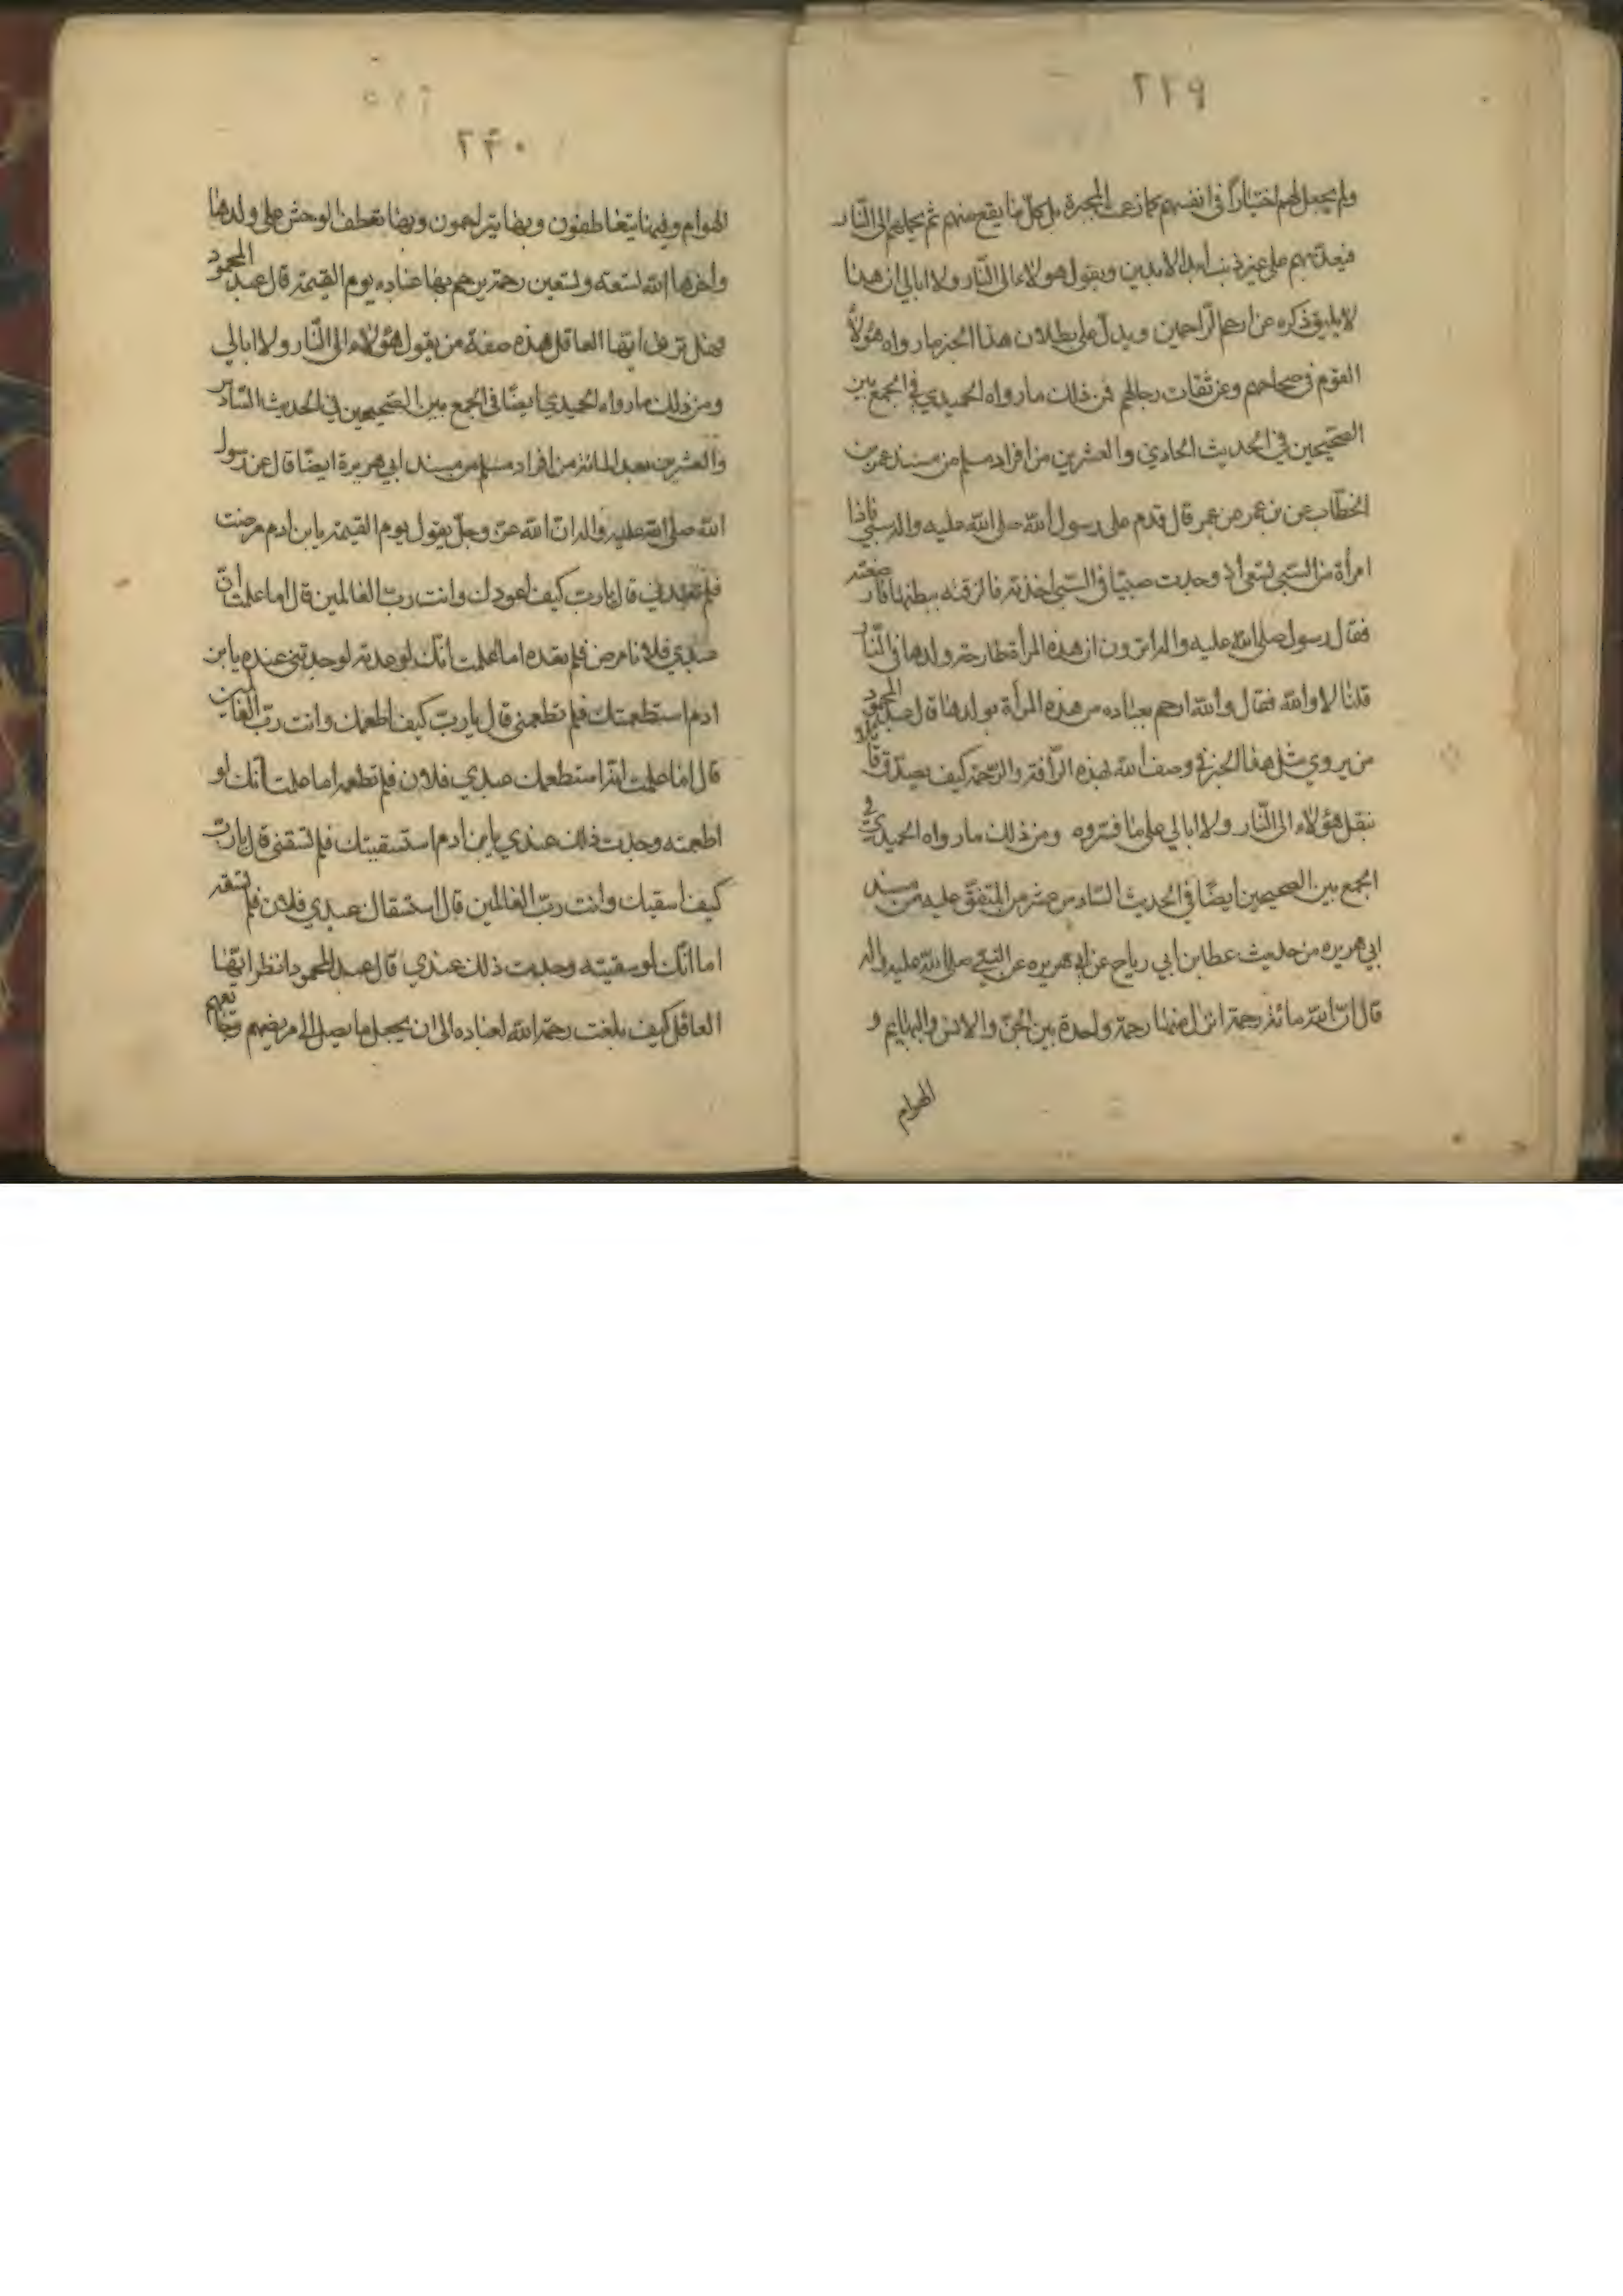 ٢٣٩
ولم يجعل لهم اختياراً في انفسهم كما زعمت المجبرة بل كل ما يقع منهم ثم يحملهم الى النّار
فيعذبهم على غير ذنب ابد الابدين ويقول هؤلاء الى النّار ولا ابالي ان هذا
لا يليق ذكره عن ارحم الرّاحمين ويدلّ على بطلان هذا الخبر ما رواه هؤلاء
القوم في صحاحهم وعن ثقات رجالهم فمن ذلك ما رواه الحميدي في الجمع بين
الصحيحين في الحديث الحادي والعشرين من افراد مسلم من مسند عمر بن
الخطّاب عن بن عمر عن عمر قال قدم على رسول الله صلى الله عليه واله سبي فاذا
امرأة من السّبي تسعى اذ وجدت صبيّا في السّبي اخذته فالزقته ببطنها فارضعته
فقال رسول صلى الله عليه واله اترون ان هذه المرأة طارحة ولدها في النّار
قلنا لا والله فقال والله ارحم بعباده من هذه المرأة بولدها قال عبد المحمود
من يروي مثل هذا الخبر في وصف الله بهذه الرّأفة والرّحمة كيف يصدّق
نقل هؤلاء الى النّار ولا ابالي على ما فسّروه ومن ذلك ما رواه الحميدي في
الجمع بين الصحيحين ايضًا في الحديث السّادس عشر من المتفق عليه من مسند
ابي هريره من حديث عطا بن ابي رياح عن ابي هريره عن النّبي صلى الله عليه واله
قال انّ لله مائة رحمة انزل منها رحمة واحدة بين الجنّ والانس والبهايم و
الهوام
٢٣٠
الهوام وفيها يتعاطفون وبها يتراحمون وبها تعطف الوحش على ولدها
واخرها الله تسعة وتسعين رحمة يرحم بها عباده يوم القيمة قال عبد المحمود
فهل ترى ايها العاقل هذه صفة من يقول هؤلاء الى النّار ولا ابالي
ومن ذلك ما رواه الحميدي ايضًا في الجمع بين الصّحيحين في الحديث السّادس
والعشرين بعد المائة من افراد مسلم من مسند ابي هريرة ايضًا قال عن رسول
الله صلى الله عليه واله انّ الله عزّ وجلّ يقول يوم القيمة يا بن ادم مرضت
فلم تعدني قال يا ربّ كيف اعودك وانت ربّ العالمين قال اما علمت انّ
عبدي فلانا مرض فلم تعده اما علمت انّك لو عدته لوجدتني عنده يا بن
ادم استطعمتك فلم تطعمني قال يا ربّ كيف اطعمك وانت ربّ العالمين
قال اما علمت انه استطعمك عبدي فلان فلم تطعمه اما علمت انّك لو
اطعمته وجدت ذلك عندي يا بن ادم استسقيتك فلم تسقني قال يا ربّ
كيف اسقيك وانت ربّ العالمين قال استسقاك عبدي فلان فلم تسقه
اما انّك لو سقيته وجدت ذلك عندي قال عبد المحمود انظر ايّها
العاقل كيف بلغت رحمة الله لعباده الى ان يجعل ما يصل الى مريضهم